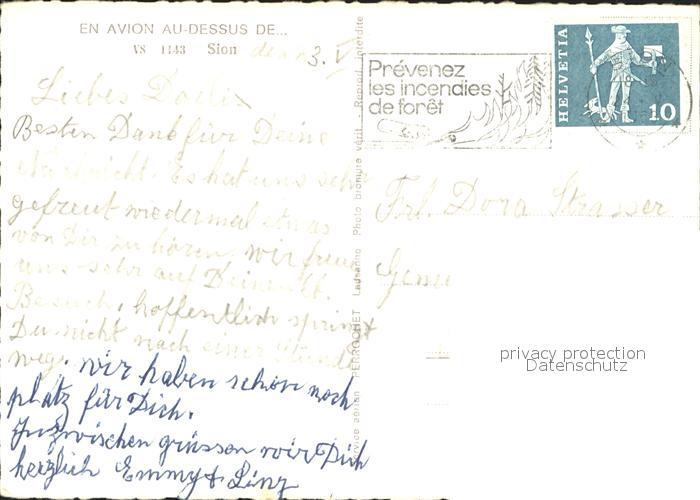 EN AVION AU-DESSUS DE...
VS 1143 Sion den 3. V
Liebes Dorli
Besten Dank für Deine
Nachricht. Es hat uns sehr
gefreut wiedermal etwas
von Dir zu hören, wir freuen
uns sehr auf Deinen lb.
Besuch, hoffentlich springst
Du nicht nach einer Stunde
weg. wir haben schon noch
platz für Dich.
Inzwischen grüssen wir Dich
herzlich Emmy + Linz
Service aérien PERROCHET Lausanne Photo bromure vérit. Reprod. interdite
Prévenez
les incendies
de forêt
HELVETIA
10
Frl. Dora Strasser
privacy protection
Datenschutz